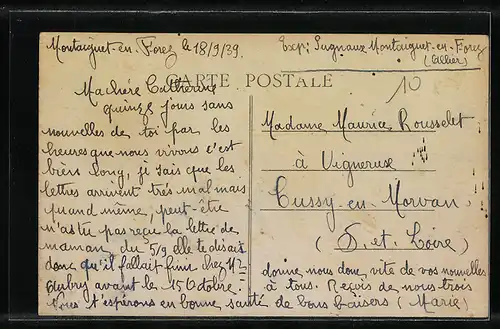 Montaiguet-en-Forez le 18/9/39.
Exp: Pugnaux Montaiguet-en-Forez
(Allier)
CARTE POSTALE
10
Ma chère Catherine
quinze jours sans
nouvelles de toi par les
heures que nous vivons c'est
bien long, je sais que les
lettres arrivent très mal mais
quand même, peut-être
n'as tu pas reçu la lettre de
maman du 5/9 elle te disait
donc qu'il fallait finir chez Mr
Aubry avant le 15 Octobre.
Nous t'espérons en bonne santé
Madame Maurice Rousselet
à Vigneruse
Cussy-en-Morvan
(S. et. Loire)
donne nous donc vite de vos nouvelles
à tous. Reçois de nous trois
de bons baisers (Marie)